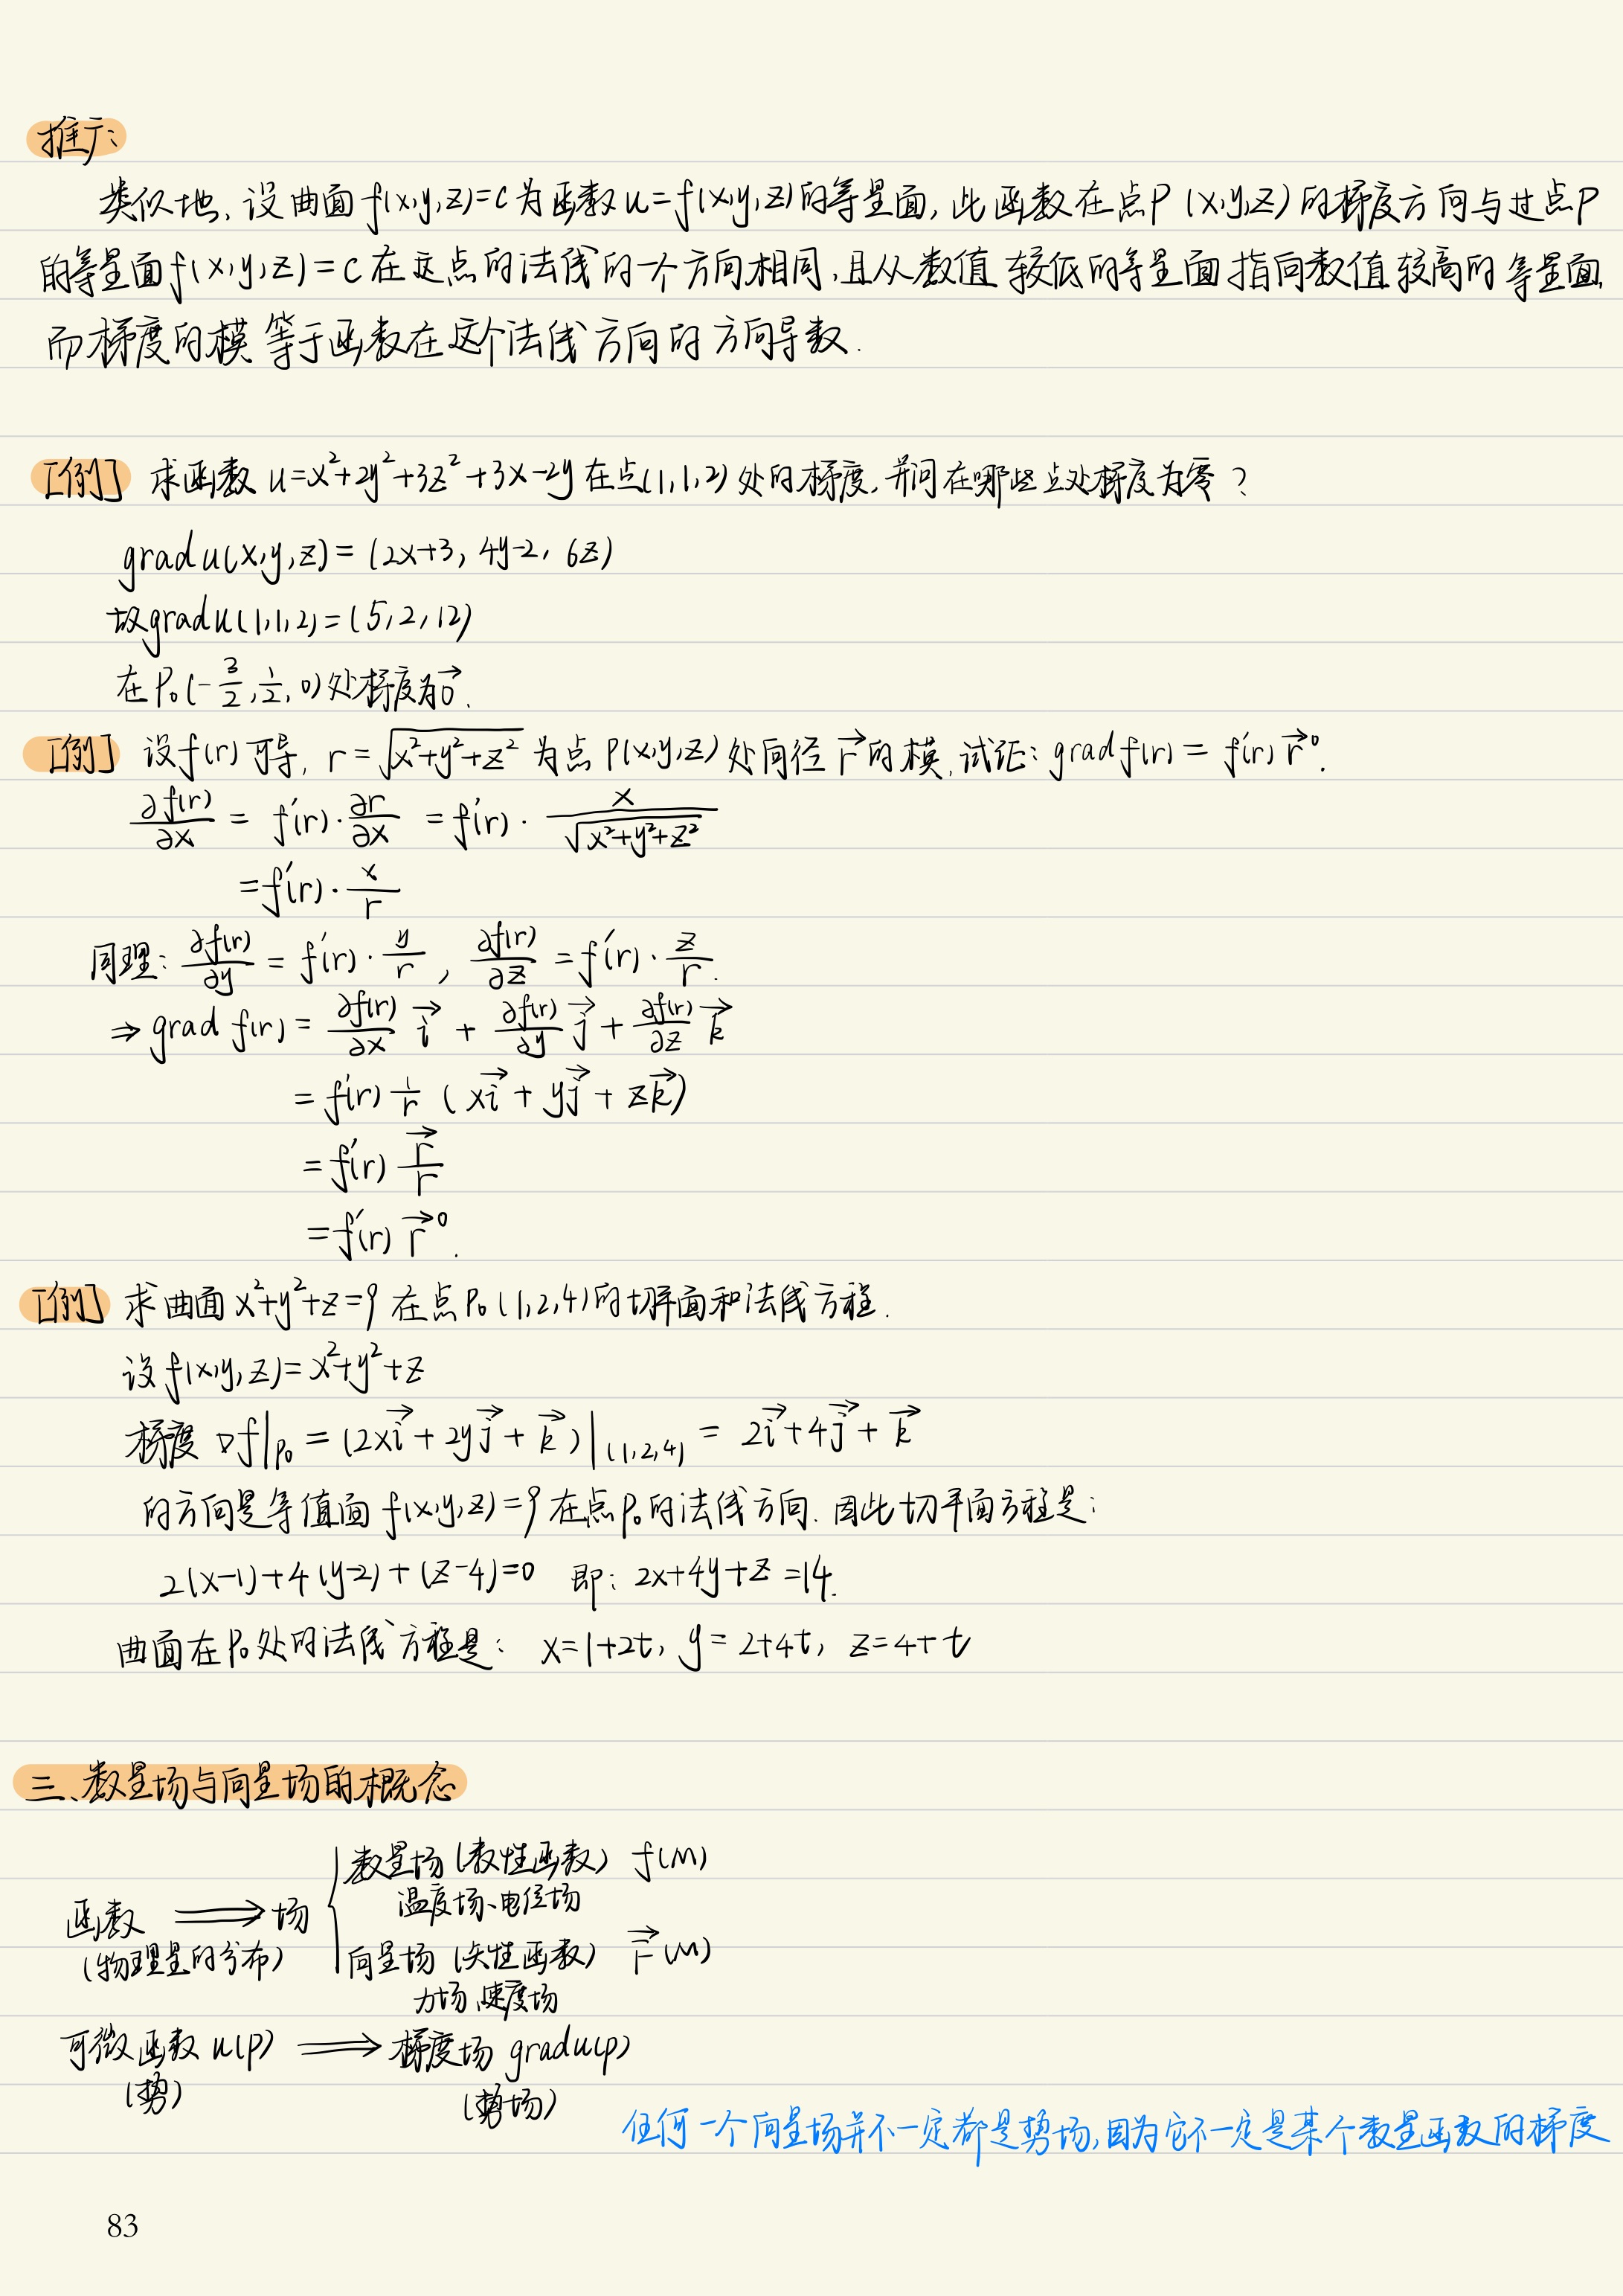 推广:
类似地,设曲面 f(x,y,z)=c 为函数 u=f(x,y,z)的等量面,此函数在点P (x,y,z) 的梯度方向与过点P
的等量面 f(x,y,z)=c 在这点的法线的一个方向相同,且从数值较低的等量面指向数值较高的等量面,
而梯度的模等于函数在这个法线方向的方向导数.
[例] 求函数 u=x²+2y²+3z²+3x-2y 在点(1,1,2) 处的梯度,并问在哪些点处梯度为零?
grad u(x,y,z) = (2x+3, 4y-2, 6z)
故 grad u(1,1,2) = (5,2,12)
在 P₀(-3/2, 1/2, 0) 处梯度为 0⃗.
[例] 设 f(r) 可导, r = √(x²+y²+z²) 为点 P(x,y,z) 处向径 r⃗ 的模, 试证: grad f(r) = f'(r) r⃗⁰.
∂f(r)/∂x = f'(r)·∂r/∂x = f'(r)· x/√(x²+y²+z²)
= f'(r)· x/r
同理: ∂f(r)/∂y = f'(r)· y/r , ∂f(r)/∂z = f'(r)· z/r.
⇒ grad f(r) = ∂f(r)/∂x i⃗ + ∂f(r)/∂y j⃗ + ∂f(r)/∂z k⃗
= f'(r) 1/r (xi⃗ + yj⃗ + zk⃗)
= f'(r) r⃗/r
= f'(r) r⃗⁰.
[例] 求曲面 x²+y²+z=9 在点 P₀ (1,2,4) 的切平面和法线方程.
设 f(x,y,z) = x²+y²+z
梯度 ∇f|P₀ = (2xi⃗ + 2yj⃗ + k⃗)|(1,2,4) = 2i⃗+4j⃗+k⃗
的方向是等值面 f(x,y,z)=9 在点 P₀ 的法线方向. 因此切平面方程是:
2(x-1)+4(y-2)+(z-4)=0 即: 2x+4y+z=14.
曲面在 P₀ 处的法线方程是: x=1+2t, y=2+4t, z=4+t
三、数量场与向量场的概念
数量场 (数性函数) f(M)
温度场、电位场
函数 ⟹ 场
(物理量的分布)
向量场 (矢性函数) r⃗(M)
力场、速度场
可微函数 u(P) ⟹ 梯度场 grad u(P)
(势) (势场)
任何一个向量场并不一定都是势场,因为它不一定是某个数量函数的梯度
83